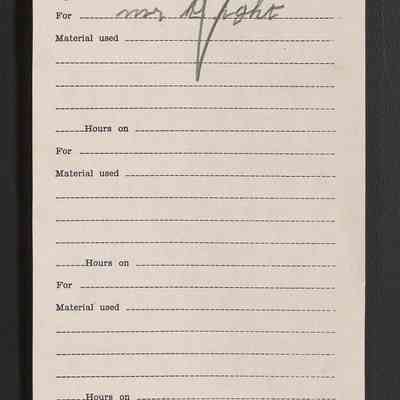 For mr
Material used
Hours on
For
Material used
Hours on
For
Material used
Hours on